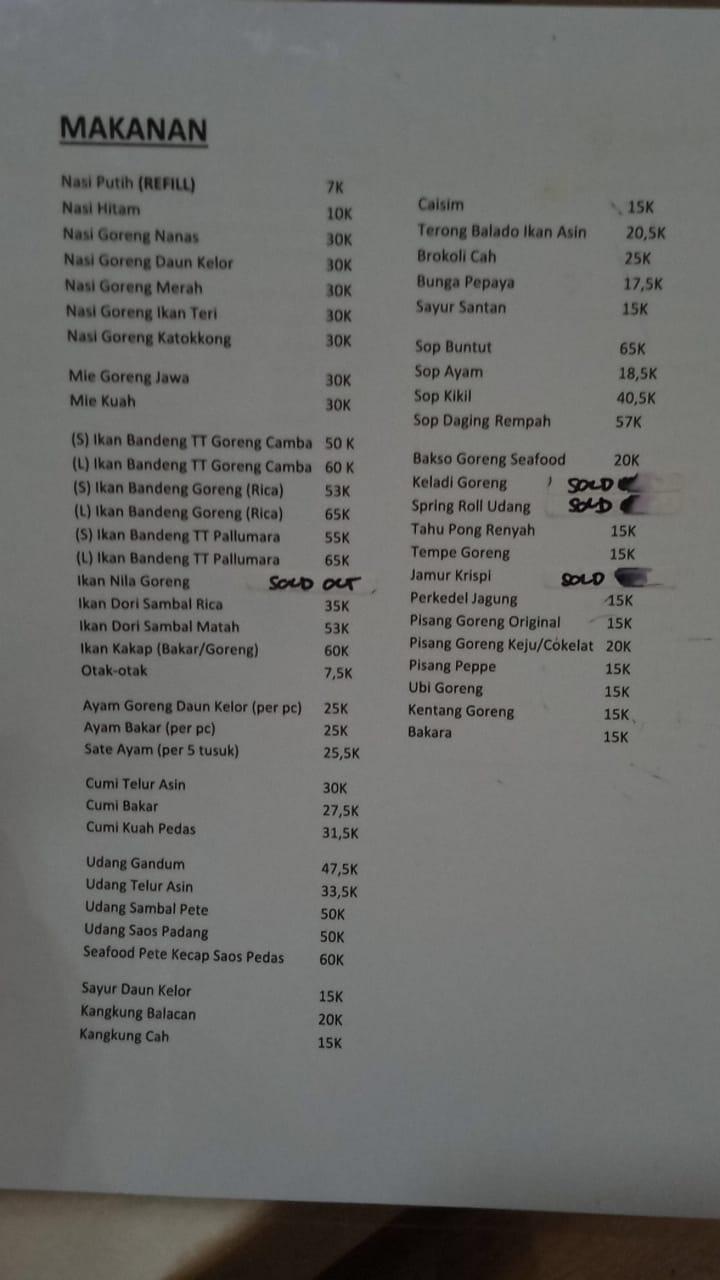 MAKANAN
Nasi Putih (REFILL) 7K
Nasi Hitam 10K
Nasi Goreng Nanas 30K
Nasi Goreng Daun Kelor 30K
Nasi Goreng Merah 30K
Nasi Goreng Ikan Teri 30K
Nasi Goreng Katokkong 30K
Mie Goreng Jawa 30K
Mie Kuah 30K
(S) Ikan Bandeng TT Goreng Camba 50 K
(L) Ikan Bandeng TT Goreng Camba 60 K
(S) Ikan Bandeng Goreng (Rica) 53K
(L) Ikan Bandeng Goreng (Rica) 65K
(S) Ikan Bandeng TT Pallumara 55K
(L) Ikan Bandeng TT Pallumara 65K
Ikan Nila Goreng SOLD OUT
Ikan Dori Sambal Rica 35K
Ikan Dori Sambal Matah 53K
Ikan Kakap (Bakar/Goreng) 60K
Otak-otak 7,5K
Ayam Goreng Daun Kelor (per pc) 25K
Ayam Bakar (per pc) 25K
Sate Ayam (per 5 tusuk) 25,5K
Cumi Telur Asin 30K
Cumi Bakar 27,5K
Cumi Kuah Pedas 31,5K
Udang Gandum 47,5K
Udang Telur Asin 33,5K
Udang Sambal Pete 50K
Udang Saos Padang 50K
Seafood Pete Kecap Saos Pedas 60K
Sayur Daun Kelor 15K
Kangkung Balacan 20K
Kangkung Cah 15K
Caisim 15K
Terong Balado Ikan Asin 20,5K
Brokoli Cah 25K
Bunga Pepaya 17,5K
Sayur Santan 15K
Sop Buntut 65K
Sop Ayam 18,5K
Sop Kikil 40,5K
Sop Daging Rempah 57K
Bakso Goreng Seafood 20K
Keladi Goreng SOLD
Spring Roll Udang SOLD
Tahu Pong Renyah 15K
Tempe Goreng 15K
Jamur Krispi SOLD
Perkedel Jagung 15K
Pisang Goreng Original 15K
Pisang Goreng Keju/Cokelat 20K
Pisang Peppe 15K
Ubi Goreng 15K
Kentang Goreng 15K
Bakara 15K